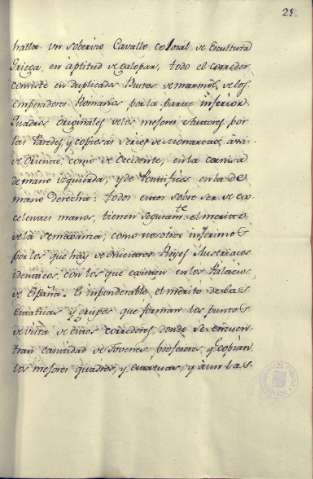 28.
hallar un sobervio Cavallo colosal de Escultura
Griega, en aptitud de Galopar, todo el corredor
consiste en duplicados Bustos de marmol, de los
Emperadores Romanos por la parte inferior.
Quadros originales de los mejores Autores por
las Paredes, y copiosas series de Monarcas, ava-
de Oriente, como de Occidente, en la cornisa
de mano izquierda, y de Pontifices en la de
mano derecha: todo esto sobre ser de ex-
celentes manos, tienen seguram.te el merito
de la semejanza; como nosotros inferimos
por los que hay de nuestros Reyes Austriacos
identicos, con los que existen en los Palacios
de España. Es imponderable el merito de las
Estatuas y grupos que forman los puntos
de vista de dhos corredores, donde se encuen-
tran cantidad de Jovenes, profesores, y copian
los mejores quadros, y estatuas, y aun las